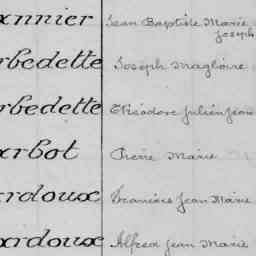 annier Jean Baptiste Marie
Joseph
rbedette Joseph Magloire
rbedette Théodore Julien Jean
arbot Pierre Marie
ardoux François Jean Marie
ardoux Alfred Jean Marie